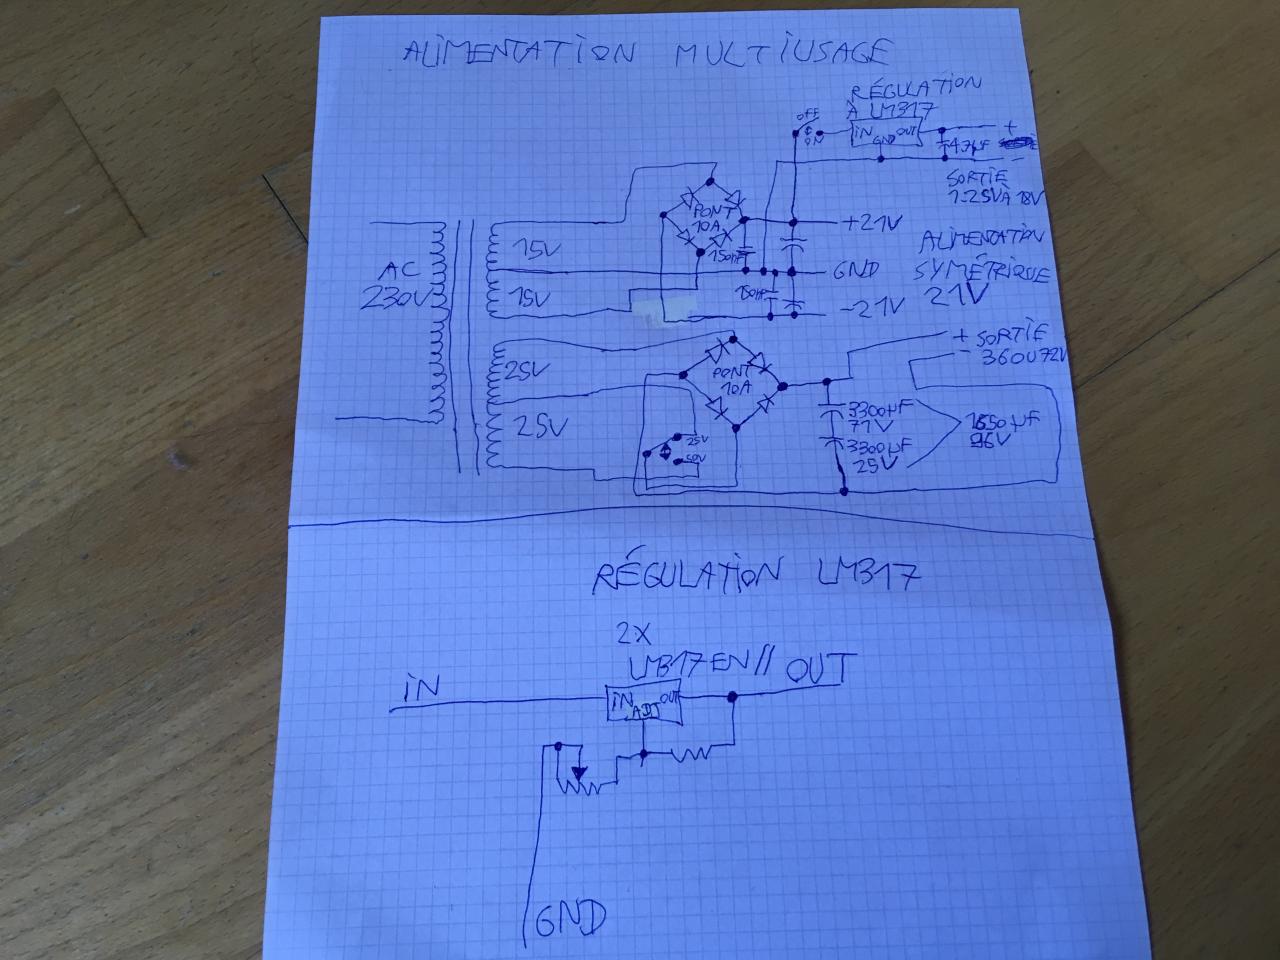 ALIMENTATION MULTIUSAGE
RÉGULATION
À LM317
OFF
ON
IN GND OUT
+
47µF
-
SORTIE
1.25V À 18V
PONT
10A
15V
150nF
+21V
ALIMENTATION
SYMÉTRIQUE
21V
AC
230V
GND
15V
150nF
-21V
+ SORTIE
- 36OU72V
25V
PONT
10A
25V
3300µF
71V
3300µF
25V
1650µF
96V
25V
50V
RÉGULATION LM317
2X
LM317 EN //
OUT
IN
IN ADJ OUT
GND